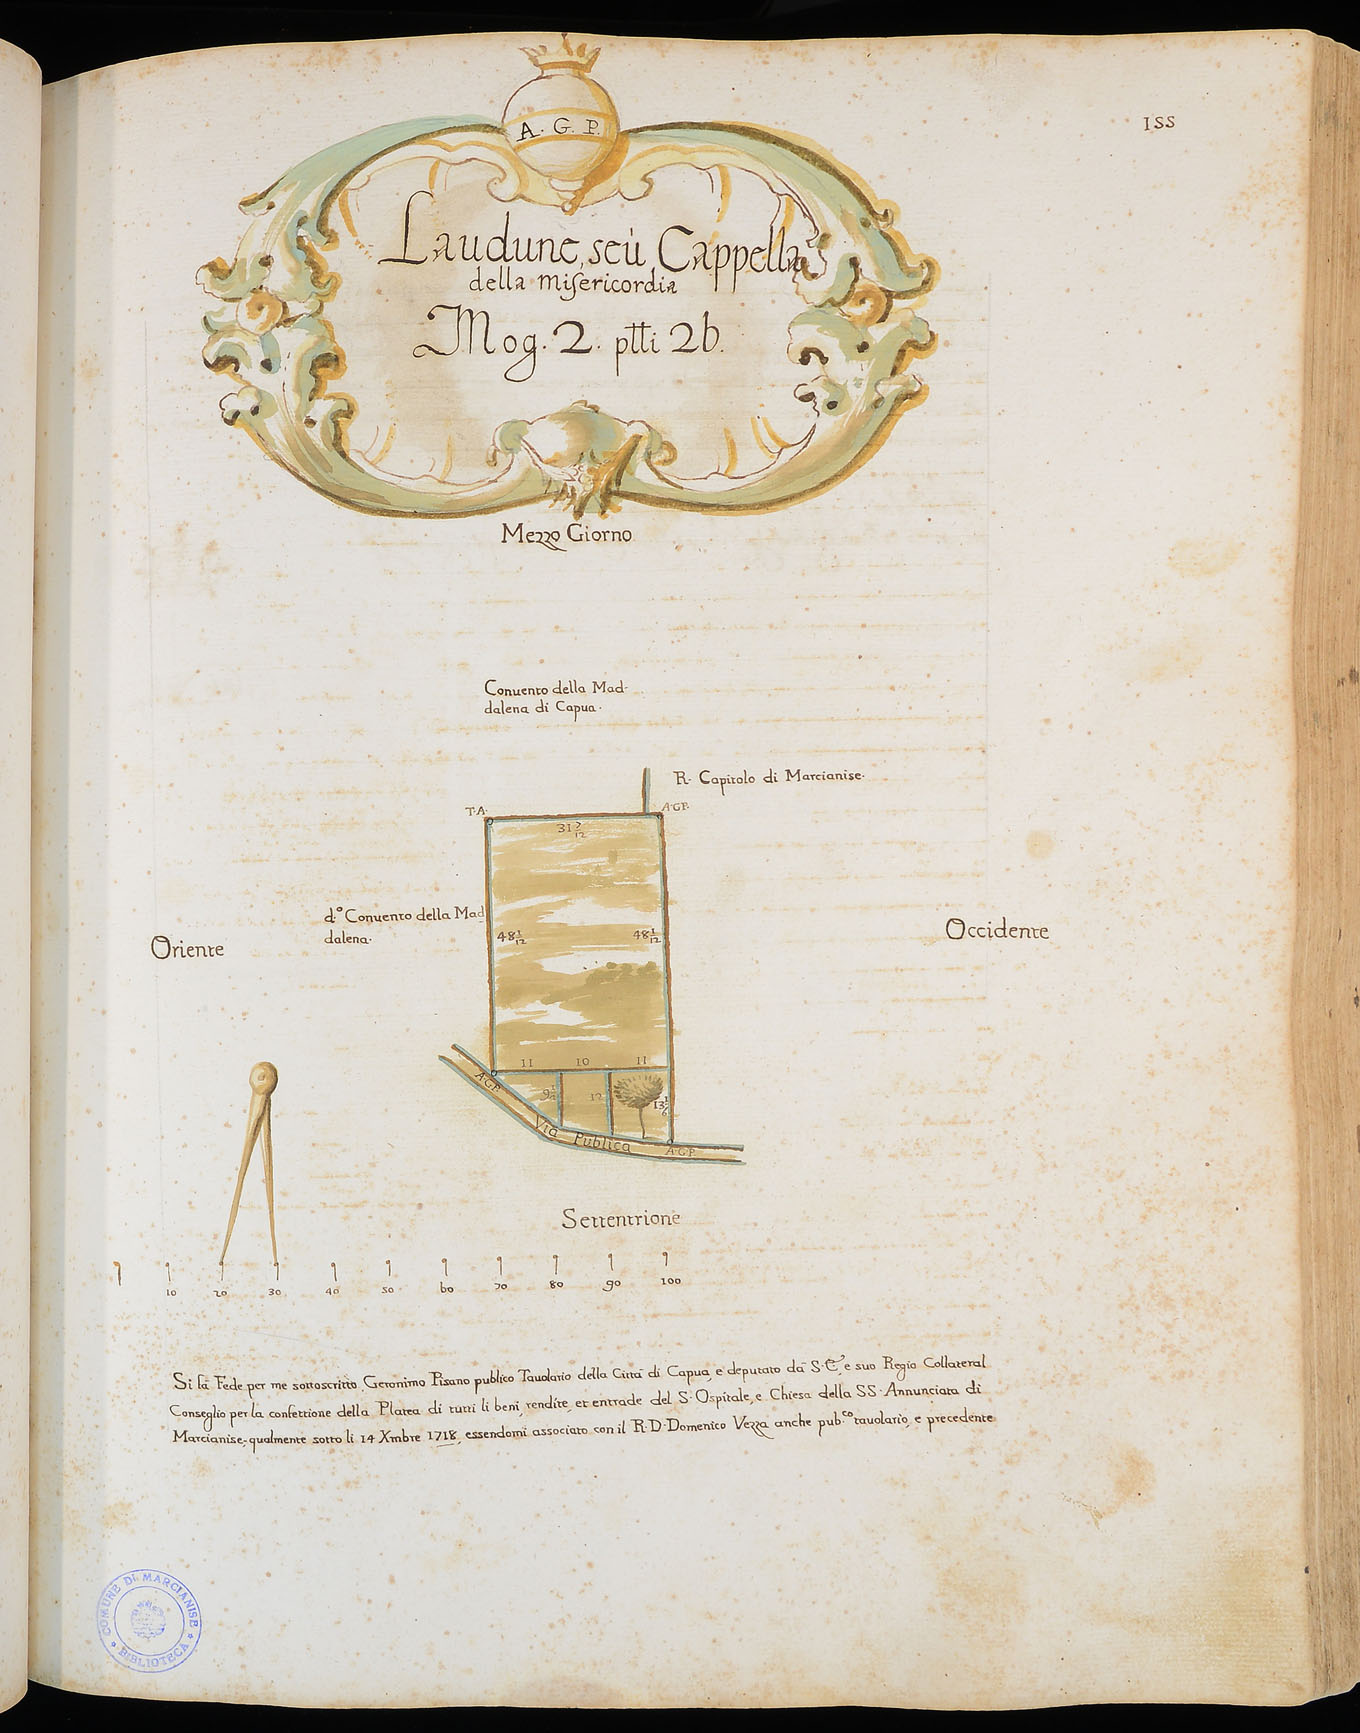 155
A. G. P.
Laudune, seù Cappella
della misericordia
Mog. 2. ptti 26.
Mezzo Giorno
Conuento della Mad-
dalena di Capua.
R. Capitolo di Marcianise.
T.A.
A.G.P.
31 7/12
d.º Conuento della Mad
dalena.
48 1/12
48 1/12
Oriente
Occidente
11 10 11
A.G.P.
12
13 1/6
Via Publica
A.G.P.
Settentrione
10 20 30 40 50 60 70 80 90 100
Si fà Fede per me sottoscritto Geronimo Pisano publico Tauolario della Città di Capua, e deputato dà S. e suo Regio Collateral
Conseglio per la confettione della Platea di tutti li beni, rendite, et entrade del S. Ospitale, e Chiesa della SS. Annunciata di
Marcianise, qualmente sotto li 14 Xmbre 1718, essendomi associato con il R.D. Domenico Vezza anche pub.co tauolario, e precedente
COMUNE DI MARCIANISE
BIBLIOTECA